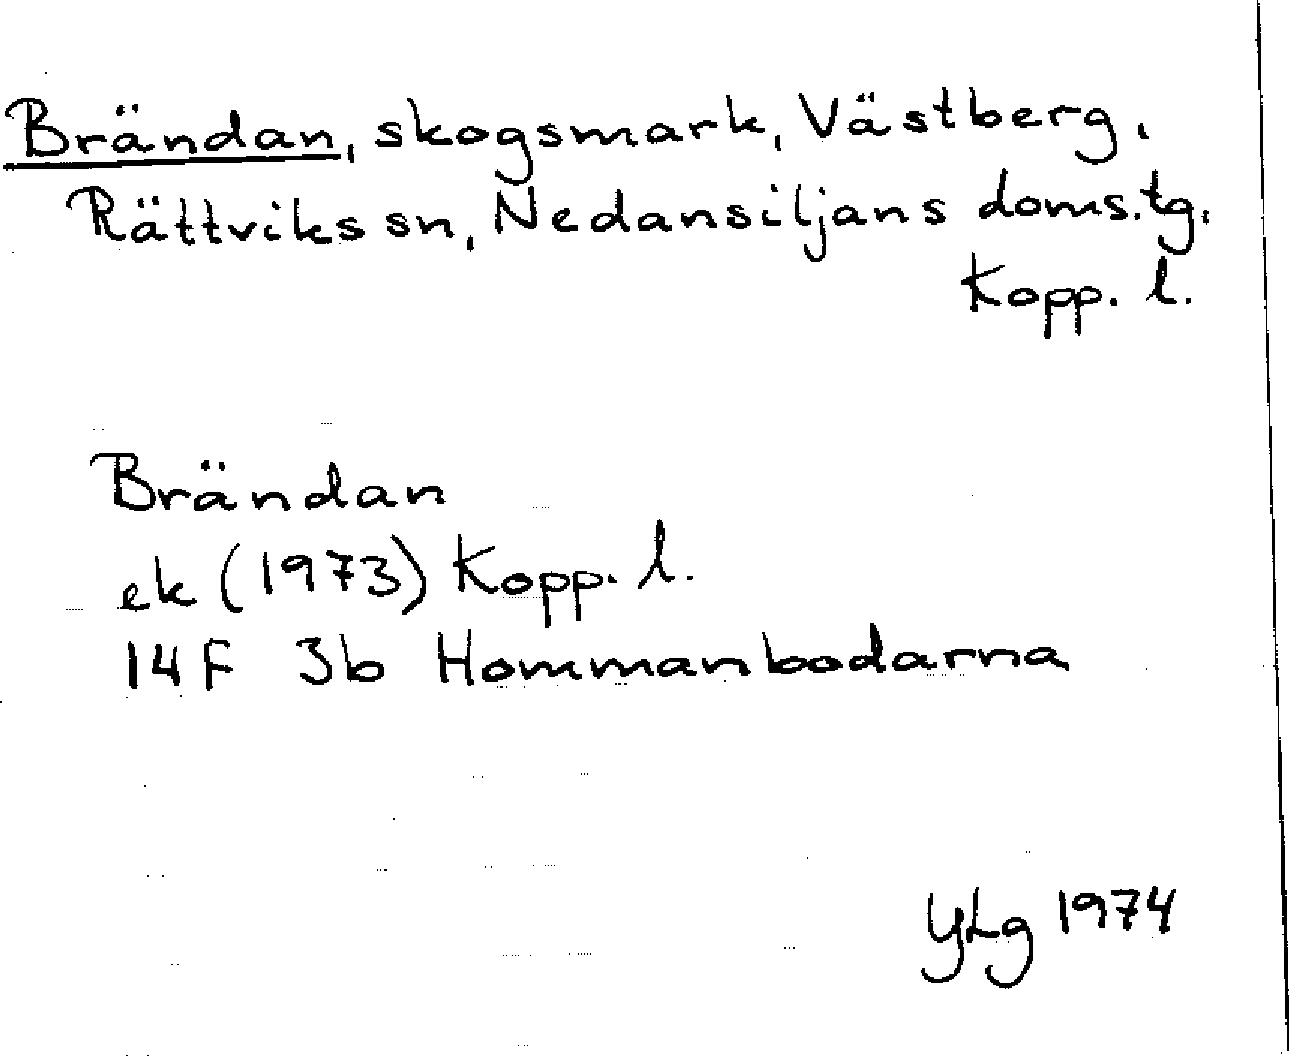 Brändan, skogsmark, Västberg,
Rättviks sn, Nedansiljans doms.tg,
Kopp. l.
Brändan
ek (1973) Kopp. l.
14F 3b Hommanbodarna
YLg 1974